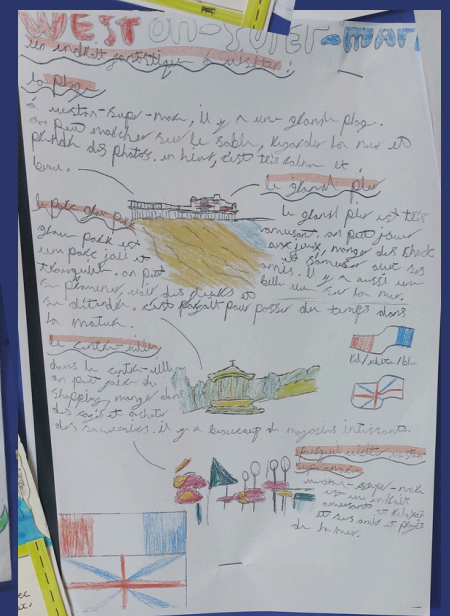 WESTON-SUPER-MARE
un endroit fantastique à visiter!
la plage
à weston-super-mare, il y a une grande plage.
on peut marcher sur le sable, regarder la mer et
prendre des photos. en hiver, c'est très calme et
beau.
le grand pier
le grand pier est très
amusant. on peut jouer
aux jeux, manger des
et s'amuser avec ses
amis. Il y a aussi une
belle vue sur la mer.
le park grove park
grove park est
un park joli et
tranquille. on peut
se promener, voir des et
se détendre. c'est parfait pour passer du temps dans
la nature.
le centre-ville
dans le centre-ville
on peut faire du
shopping, manger dans
des cafés et acheter
des souvenirs. il y a beaucoup de magasins intéressants.
pourquoi visiter weston
super mare
weston-super-mare
est un endroit
amusant et
et ses amis et
de la mer.